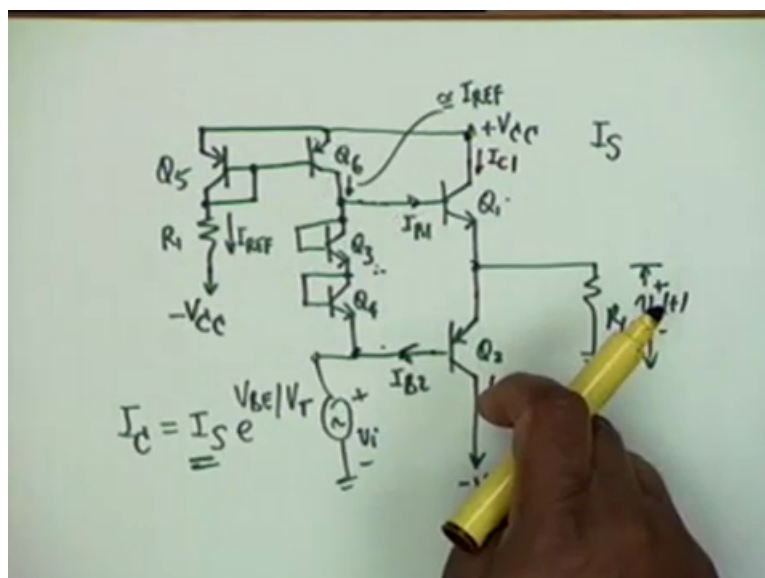 ≃ IREF
+VCC
IS
IC1
Q5
Q6
Q1
IB1
R1
IREF
Q3
Q4
-VCC
Q2
IB2
IC = IS e^VBE/VT
+
Vi
-
+
-